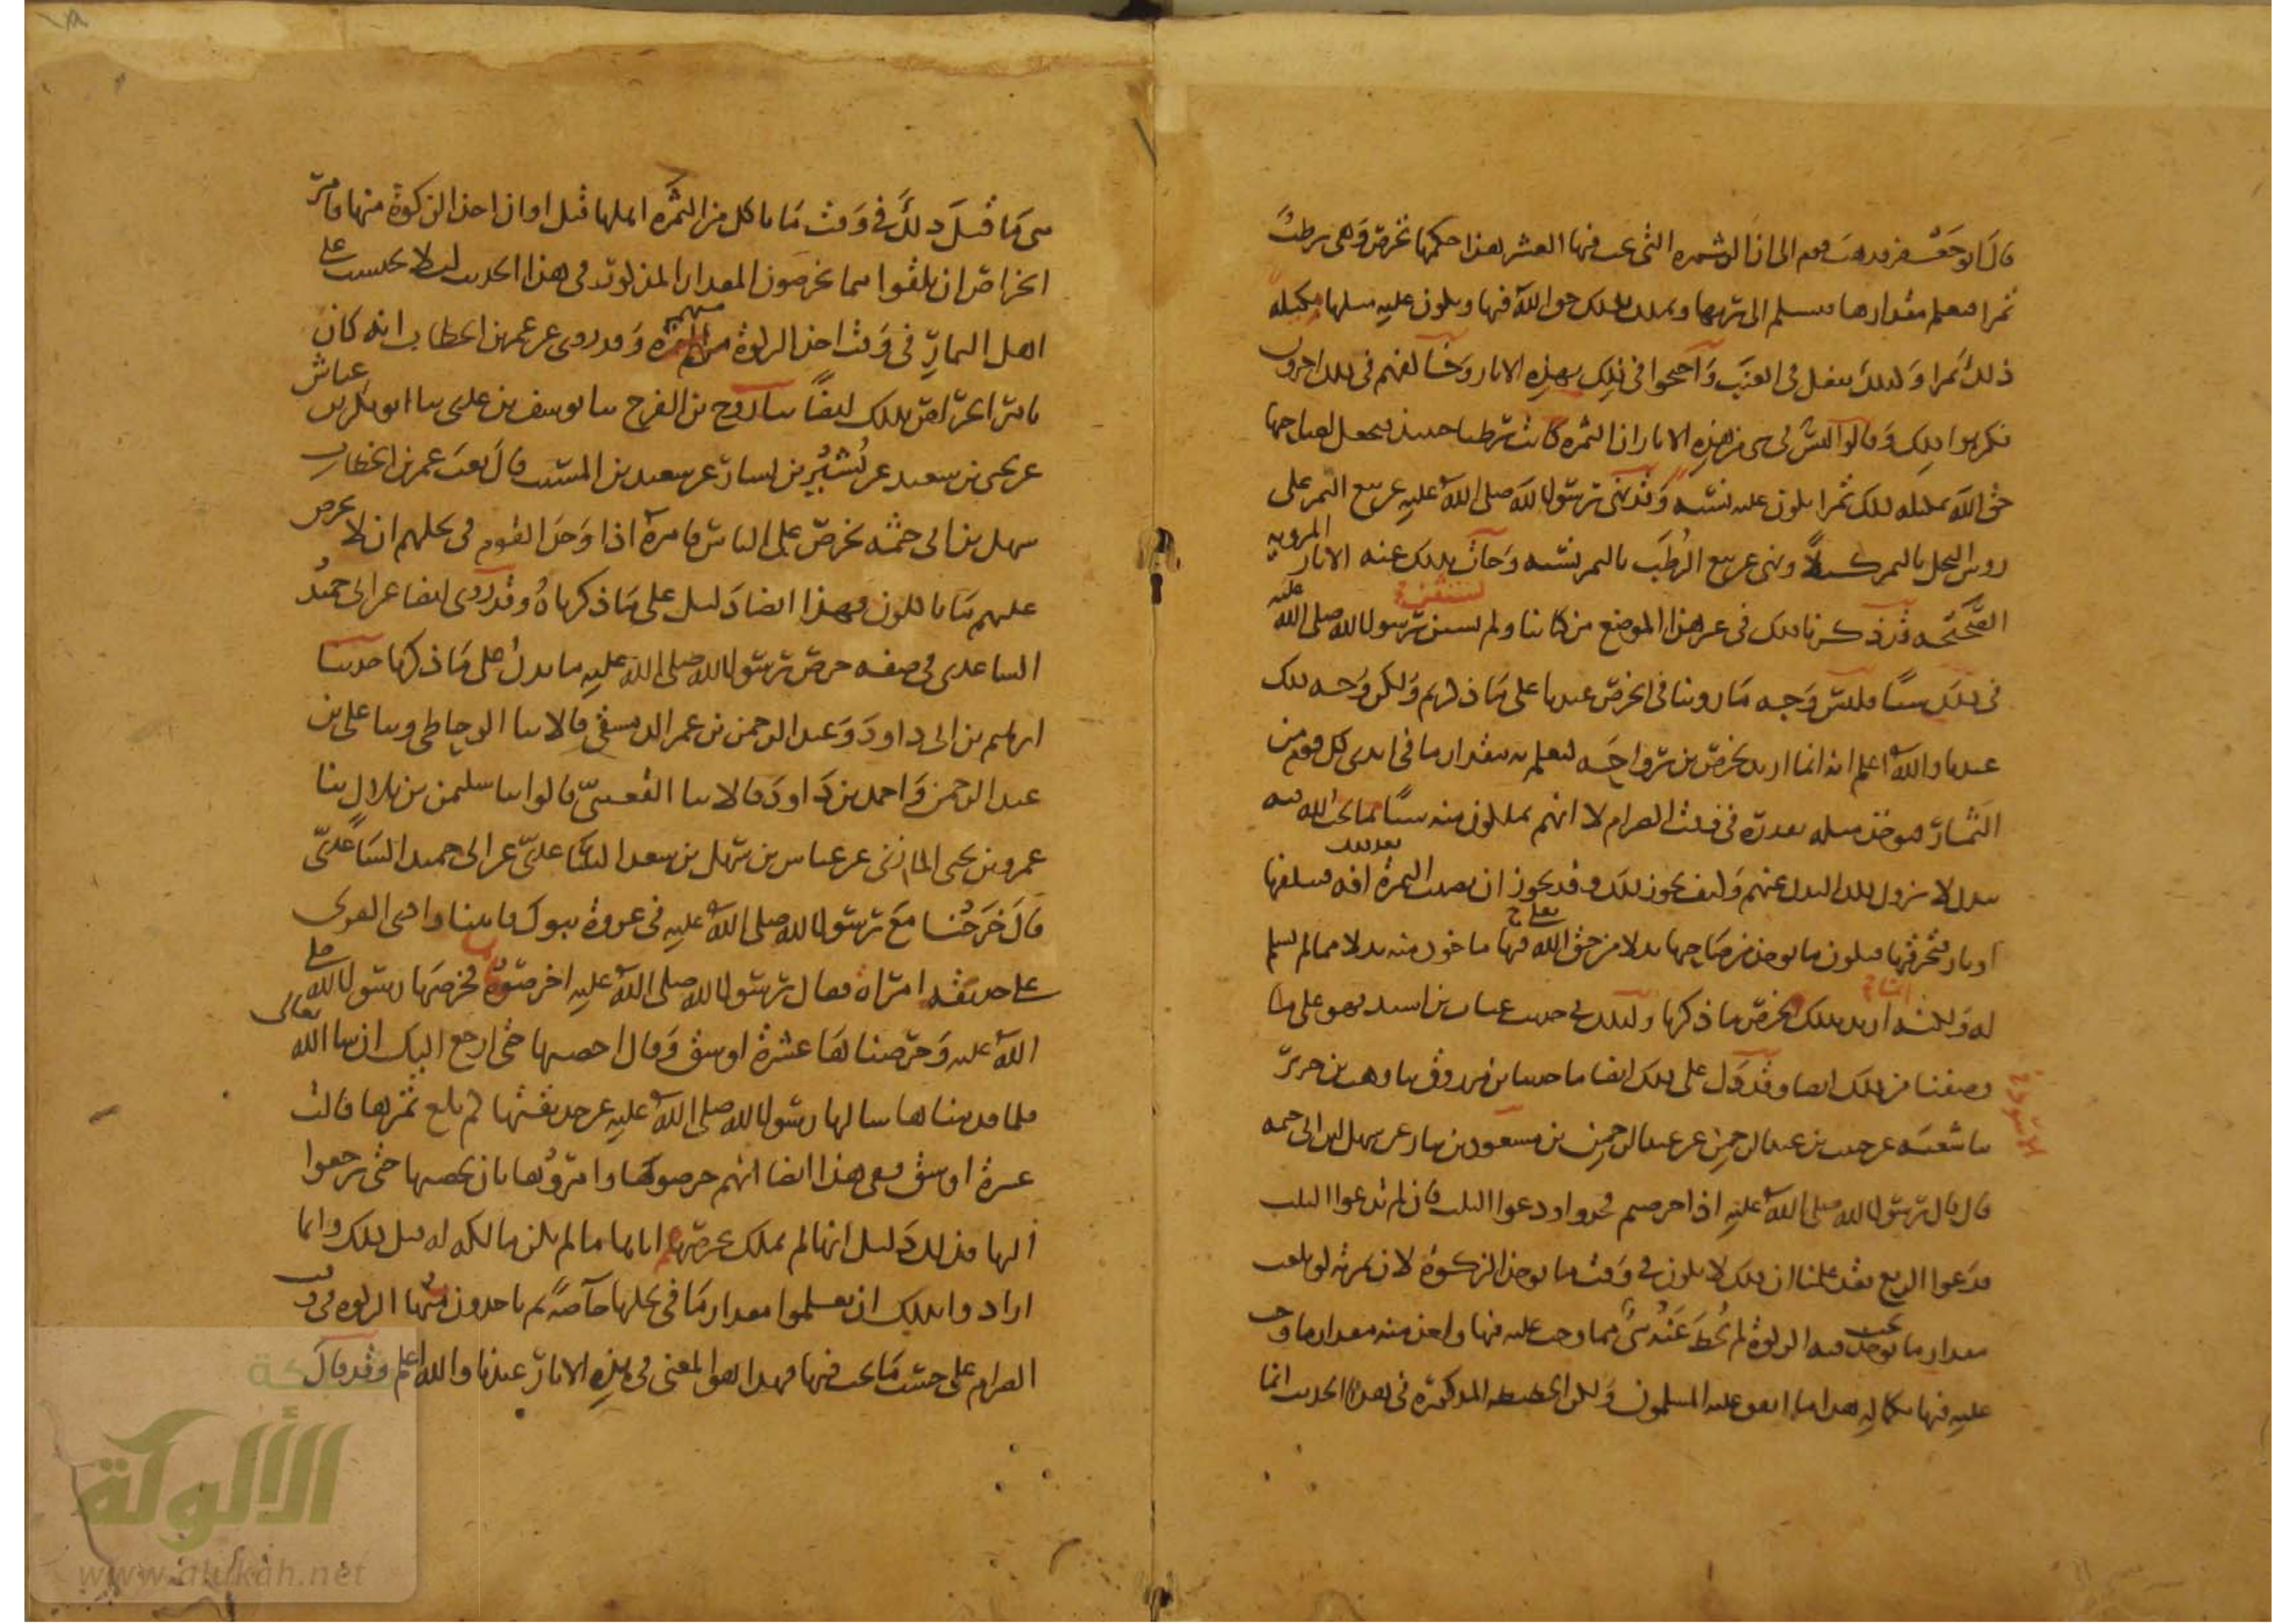 قال ابو جعفر فذهب قوم الى ان الثمرة التي يجب فيها العشر هكذا حكمها تخرص وهي رطب
تمرا فيعلم مقدارها فتسلم الى ربها ويملك بذلك حق الله فيها ويكون عليه مثلها مكيلة
ذلك تمرا وكذلك يفعل في العنب واحتجوا في ذلك بهذه الاثار وخالفهم في ذلك اخرون
فكرهوا ذلك وقالوا ليس في شي من هذه الاثار ان الثمرة كانت رطبا حينئذ فيجعل لصاحبها
حق الله بمكيلة ذلك تمرا يكون عليه نسيه وقد نهى رسول الله صلى الله عليه عن بيع التمر على
روس النخل بالتمر كيلا ونهى عن بيع الرطب بالتمر نسيه وجات بذلك عنه الاثار المروية
الصحيحة قد ذكرنا ذلك في غير هذا الموضع من كتابنا ولم يستثن رسول الله صلى الله عليه
في ذلك شيا فليس وجه ما روينا في الخرص عندنا على ما ذكرتم ولكن وجه ذلك
عندنا والله اعلم انه انما اريد بخرص بن رواحة ليعلم به مقدار ما في ايدي كل قوم من
الثمار فيوخذ مثله بقدره في وقت الصرام لا انهم يملكون منه شيا مما يجب لله فيه
ببدل لا يزول ذلك البدل عنهم وكيف يجوز ذلك وقد يجوز ان يصيب الثمرة بعد ذلك افة فتتلفها
او نار فتحرقها فيكون ما يوخذ من صاحبها بدلا من حق الله تعالى فيها ماخوذ منه بدلا مما لم يسلم
له ولكنه اريد بذلك الخرص ما ذكرنا وكذلك في حديث عتاب بن اسيد فهو على ما
وصفنا من ذلك ايضا وقد دل على ذلك ايضا ما حدثنا بن مرزوق نا وهب بن جرير
نا شعبة عن حبيب بن عبد الرحمن عن عبد الرحمن بن مسعود بن نيار عن سهل بن ابي حثمة
قال قال رسول الله صلى الله عليه اذا خرصتم فخذوا ودعوا الثلث فان لم تدعوا الثلث
فدعوا الربع فقد علمنا ان ذلك لا يكون في وقت ما يوخذ الزكوة لان ثمرته لو بلغت
مقدار ما يجب فيه الزكوة لم يحط عنه شي مما وجب عليه فيها واخذ منه مقدار ما وجب
عليه فيها بكماله هذا مما اتفق عليه المسلمون ولكن الحطيطة المذكورة في هذا الحديث انما
هي ما قبل ذلك في وقت ما ياكل من الثمرة اهلها قبل اوان اخذ الزكوة منها فامر
الخراص ان يلقوا مما يخرصون المقدار المذكور في هذا الحديث ليلا يحتسب على
اهل الثمار في وقت اخذ الزكوة منهم وقد روي عن عمر بن الخطاب انه كان
يامر الخراص بذلك ايضا نا روح بن الفرج نا يوسف بن عدي نا ابو بكر بن عياش
عن يحيى بن سعيد عن بشير بن يسار عن سعيد بن المسيب قال بعث عمر بن الخطاب
سهل بن ابي حثمة يخرص على الناس فامره اذا وجد القوم في نخلهم ان لا يخرص
عليهم ما ياكلون فهذا ايضا دليل على ما ذكرناه وقد روي ايضا عن ابي حميد
الساعدي في صفة خرص رسول الله صلى الله عليه ما يدل على ما ذكرنا حدثنا
ابرهيم بن ابي داود وعبد الرحمن بن عمر الدمشقي قالا نا الوحاظي ونا علي بن
عبد الرحمن واحمد بن داود قالا نا القعنبي قالوا نا سليمن بن بلال نا
عمرو بن يحيى المازني عن عباس بن سهل بن سعد الساعدي عن ابي حميد الساعدي
قال خرجنا مع رسول الله صلى الله عليه في غزوة تبوك فاتينا وادي القرى
على حديقة امراة فقال رسول الله صلى الله عليه اخرصوها فخرصها رسول الله صلى
الله عليه وخرصناها عشرة اوسق وقال احصيها حتى ارجع اليك ان شا الله تعالى
فلما قدمناها سالها رسول الله صلى الله عليه عن حديقتها كم بلغ ثمرها قالت
عشرة اوسق ففي هذا ايضا انهم خرصوها وامروها بان تحصيها حتى يرجعوا
اليها فذلك دليل انها لم تملك بخرصهم اياها ما لم تكن مالكة له قبل ذلك وانما
ارادوا بذلك ان يعلموا مقدار ما في نخلها خاصة ثم ياخذون منها الزكوة في وقت
الصرام على حسب ما يجب فيها فهذا هو المعنى في هذه الاثار عندنا والله اعلم وقد قال
الألوكة
www.alukah.net